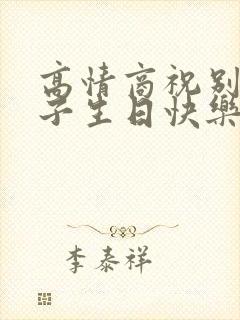 高情商祝别
子生日快樂
李泰祥